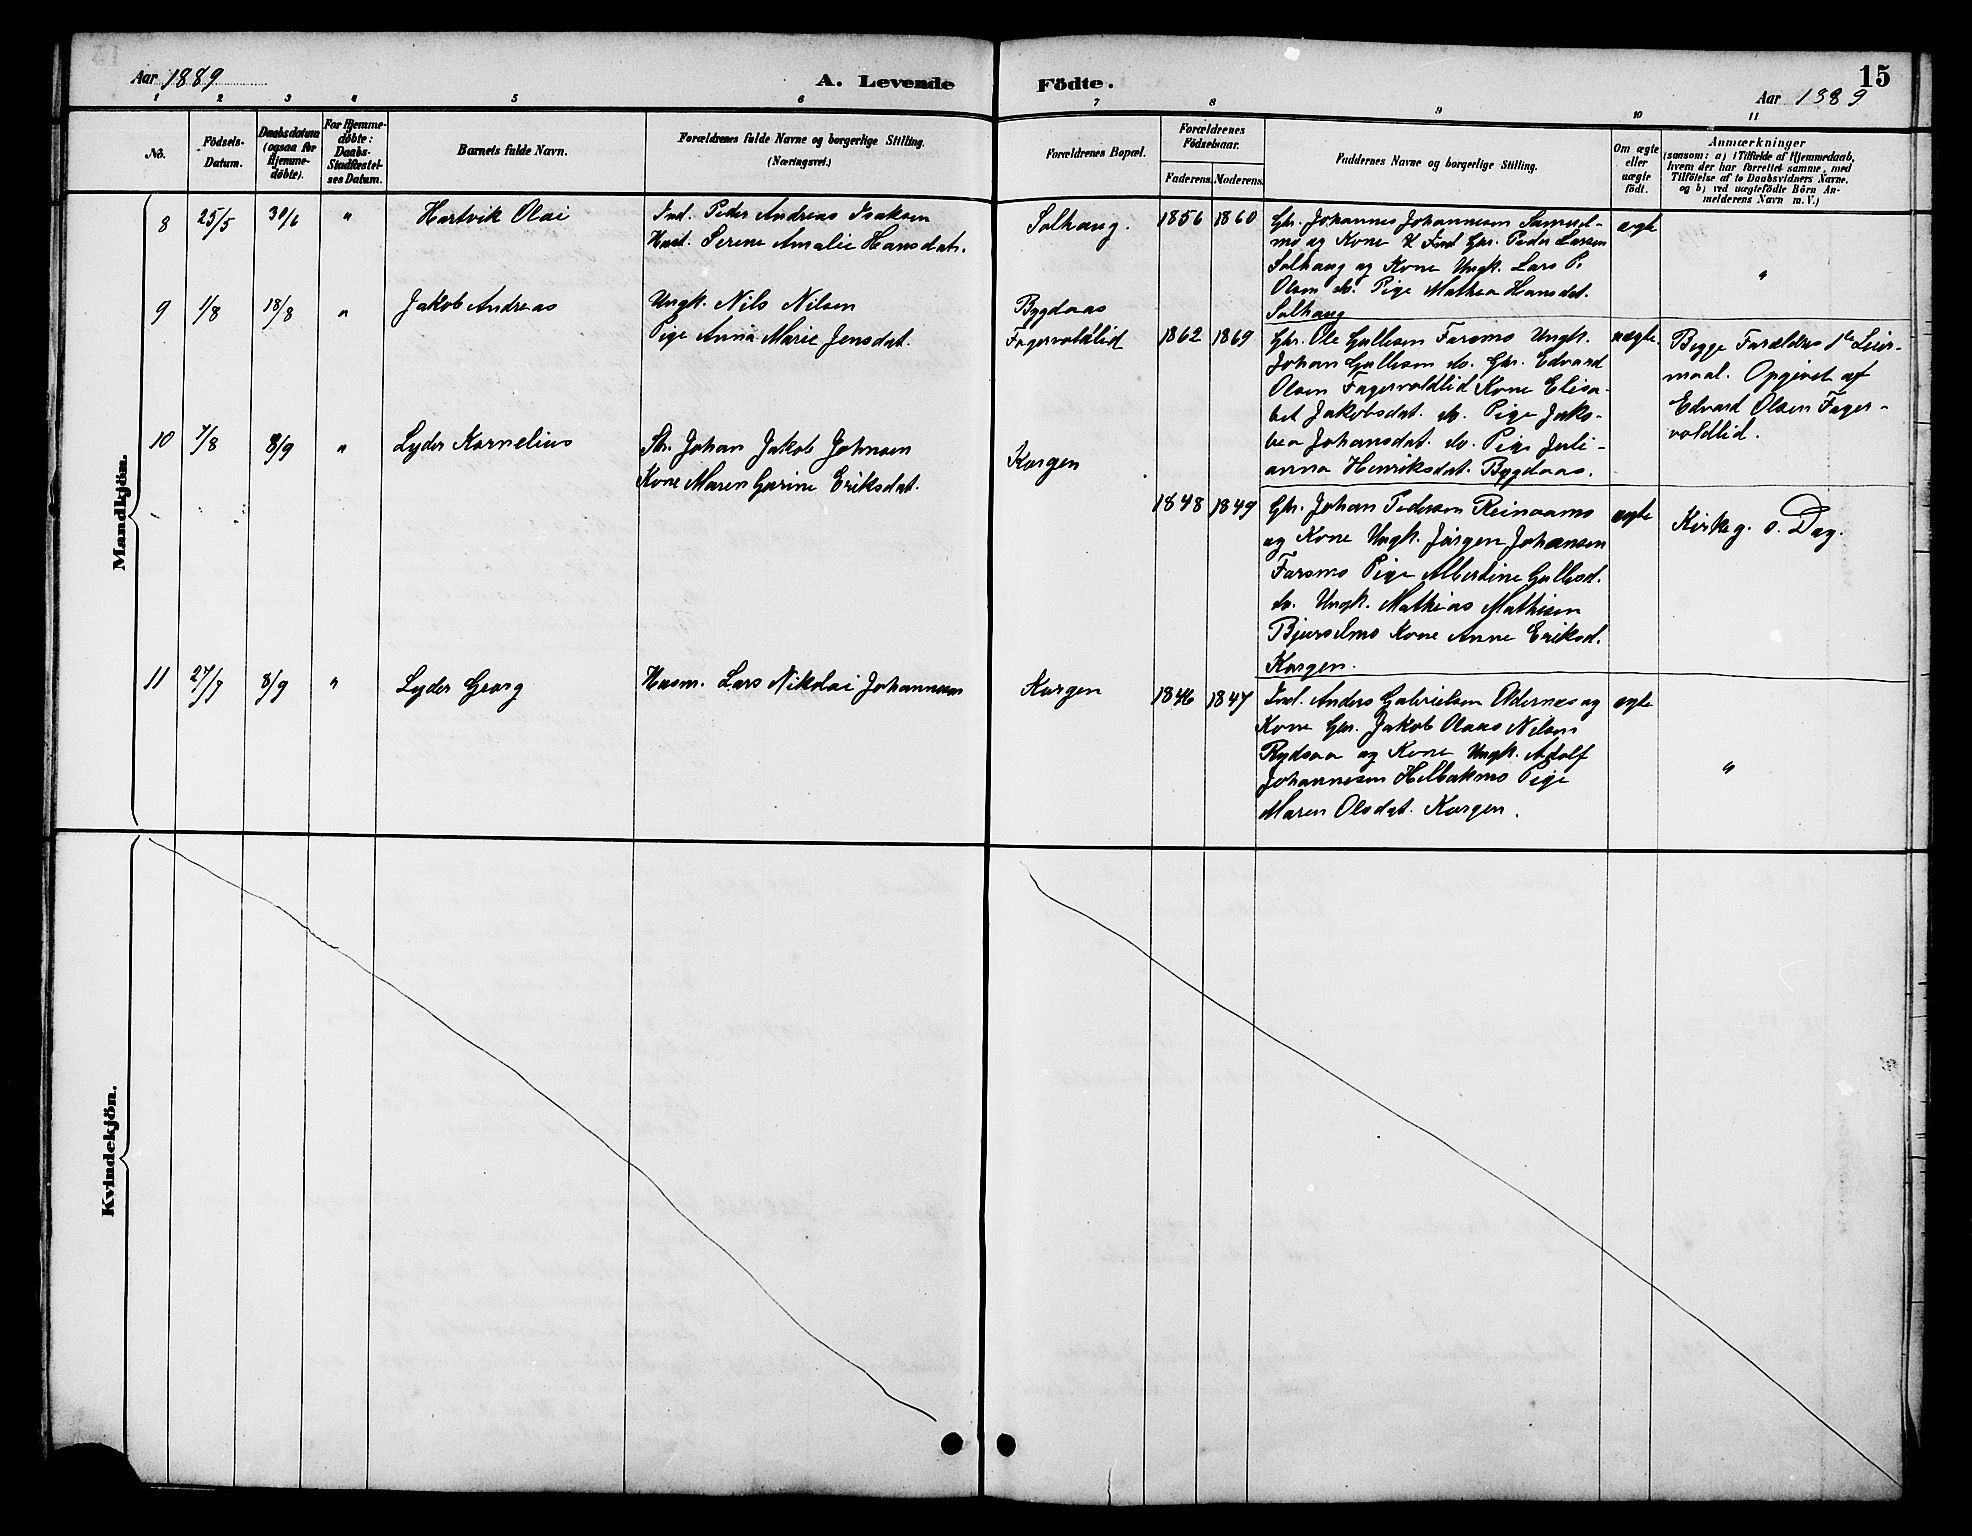 Aar 1889
A. Levende
Födte.
15
Aar 1889
1 2 3 4 5 6 7 8 9 10 11
No.
Födsels-
Datum.
Daabsdatum
(ogsaa for
Hjemme-
döbte).
For Hjemme-
döbte:
Daabs-
Stadfæstel-
ses Datum.
Barnets fulde Navn.
Forældrenes fulde Navne og borgerlige Stilling.
(Næringsvei.)
Forældrenes Bopæl.
Forældrenes
Födselsaar.
Faderens. Moderens.
Faddernes Navne og borgerlige Stilling.
Om ægte
eller
uægte
födt.
Anmærkninger
(saasom: a) i Tilfælde af Hjemmedaab,
hvem der har forrettet samme, med
Tilföielse af to Daabsvidners Navne.
og b) ved uægtefödte Börn An-
melderens Navn m. V.)
Mandkjön.
8 25/5 30/6 " Hartvik Olai
Ind. Peder Andreas Isaksen
Hust. Serene Amalie Hansdat.
Solhaug.
1856 1860
Gbr. Johannes Johannesen Samuel-
mo og Kone Gbr. Peder Larsen
Solhaug og Kone Ungk. Lars P.
Olsen do. Pige Mathea Hansdat.
Solhaug
ægte
"
9 1/8 18/8 " Jakob Andreas
Ungk. Nils Nilsen
Pige Anna Marie Jensdat.
Bygdaas
Fagervoldlid
1862 1869
Gbr. Ole Gullesen Farsmo Ungk.
Johan Gullesen do. Gbr. Edvard
Olsen Fagervoldlid Kone Elisa-
bet Jakobsdat. do. Pige Jako-
bea Johansdat. do. Pige Juli-
anna Henriksdat. Bygdaas.
uægte.
Begge Forældres 1ste Leier-
maal. Opgivet af
Edvard Olsen Fager-
voldlid.
10 7/8 8/9 " Lyder Kornelius
Str. Johan Jakob Johnsen
Kone Maren Gurine Eriksdat.
Korgen
1848 1849
Gbr. Johan Pedersen Reinaamo
og Kone Ungk. Jørgen Johansen
Farsmo Pige Albertine Gullesd.
do. Ungk. Mathias Mathisen
Bjurselmo Kone Anne Eriksd.
Korgen.
ægte
Kirkeg. s. Dag.
11 27/7 8/9 " Lyder Georg
Husm. Lars Nikolai Johannesen
Korgen
1846 1847
Ind. Anders Gabrielsen Oldernes og
Kone Gbr. Jakob Olaus Nilsen
Rydsaa og Kone Ungk. Adolf
Johannesen Helbakmo Pige
Maren Olsdat. Korgen.
ægte
"
Kvindekjön.